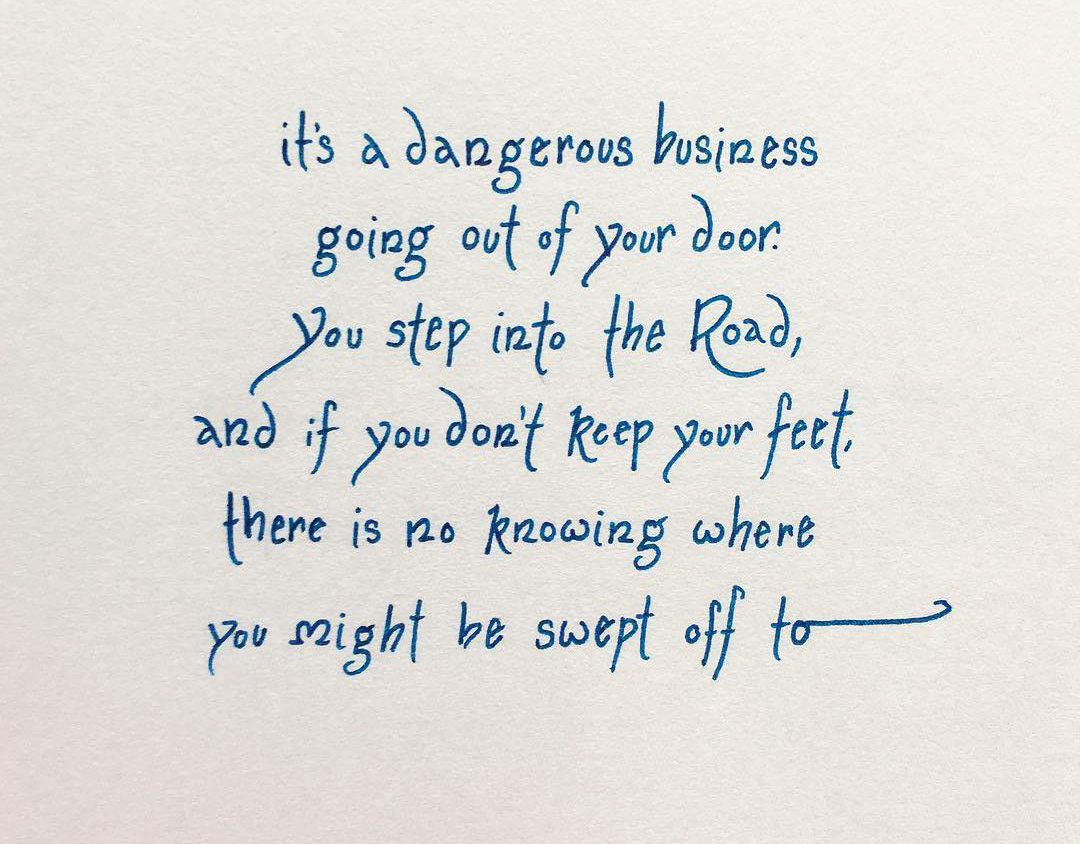 it's a dangerous business
going out of your door.
you step into the Road,
and if you don't keep your feet,
there is no knowing where
you might be swept off to